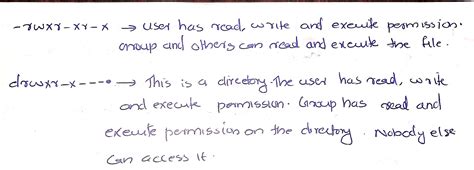 -rwxr-xr-x → user has read, write and execute permission.
Group and others can read and execute the file.
drwxr-x---- → This is a directory. The user has read, write
and execute permission. Group has read and
execute permission on the directory. Nobody else
can access it.